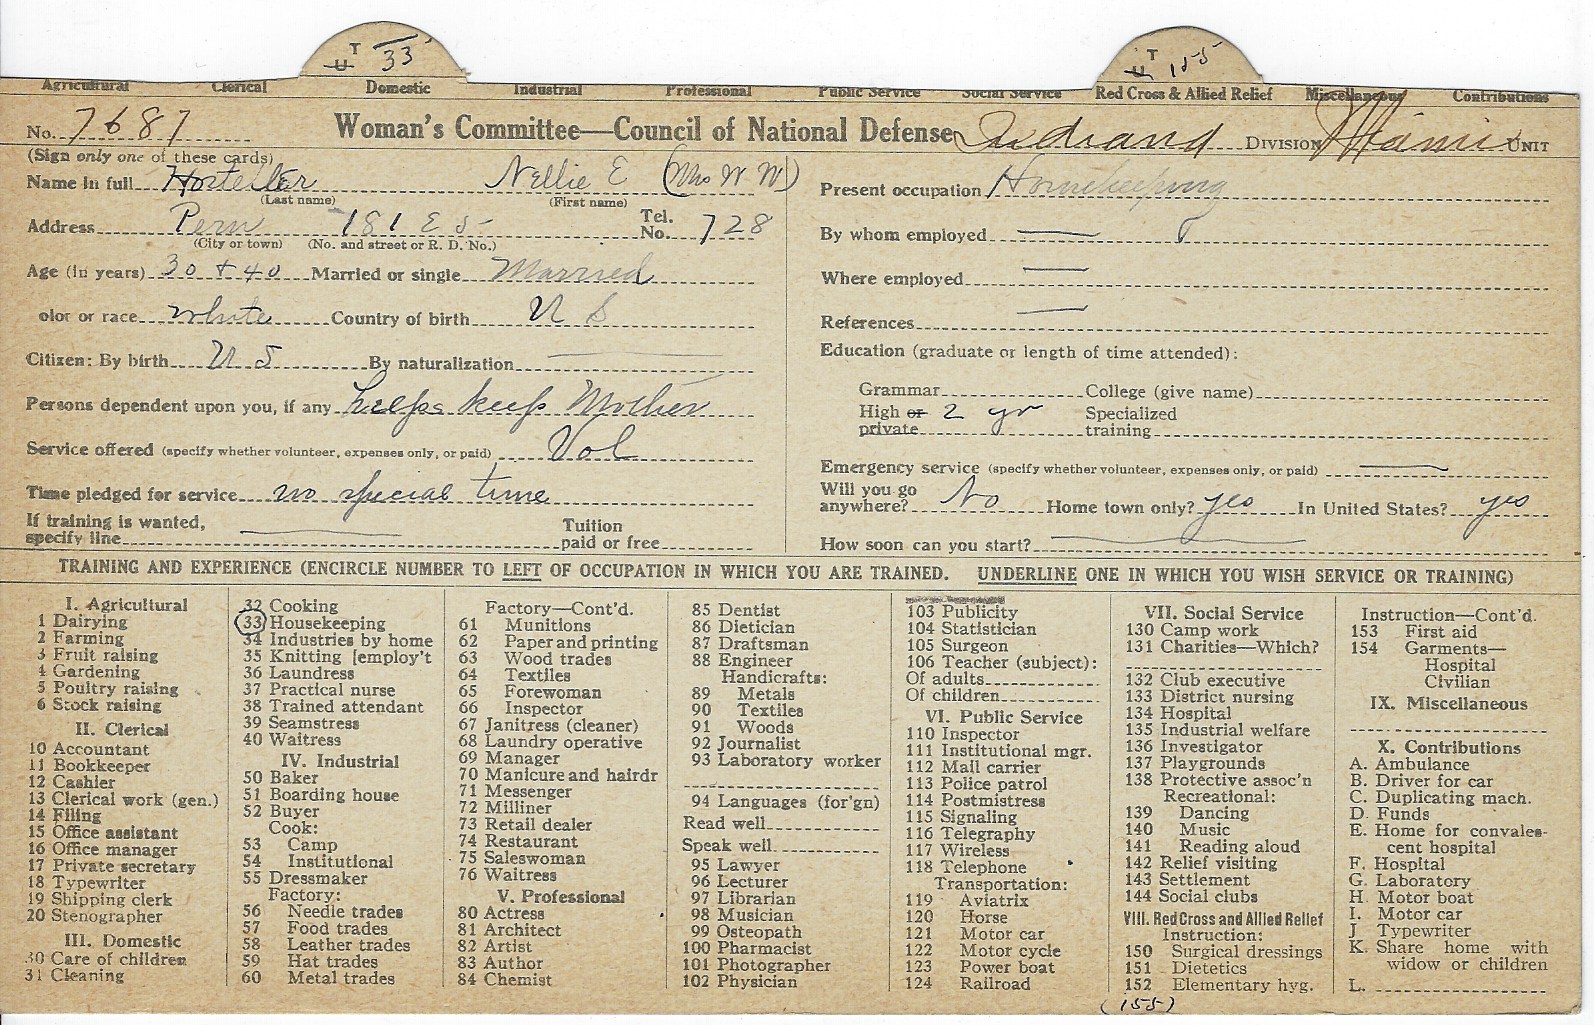 T 33
U
T 155
U
Agricultural Clerical Domestic Industrial Professional Public Service Social Service Red Cross & Allied Relief Miscellaneous Contributions
No. 7687 Woman's Committee—Council of National Defense Indiana DIVISION Miami UNIT
(Sign only one of these cards)
Name in full Hostetler Nellie E (Mrs W W)
(Last name) (First name)
Address Peru 181 E 5 Tel. No. 728
(City or town) (No. and street or R. D. No.)
Age (in years) 30 + 40 Married or single Married
olor or race white Country of birth U S
Citizen: By birth U S By naturalization
Persons dependent upon you, if any helps keep Mother
Service offered (specify whether volunteer, expenses only, or paid) Vol
Time pledged for service no special time
If training is wanted, specify line Tuition paid or free
Present occupation Homekeeping
By whom employed
Where employed
References
Education (graduate or length of time attended):
Grammar College (give name)
High or private 2 yr Specialized training
Emergency service (specify whether volunteer, expenses only, or paid)
Will you go anywhere? No Home town only? yes In United States? yes
How soon can you start?
TRAINING AND EXPERIENCE (ENCIRCLE NUMBER TO LEFT OF OCCUPATION IN WHICH YOU ARE TRAINED. UNDERLINE ONE IN WHICH YOU WISH SERVICE OR TRAINING)
I. Agricultural
1 Dairying
2 Farming
3 Fruit raising
4 Gardening
5 Poultry raising
6 Stock raising
II. Clerical
10 Accountant
11 Bookkeeper
12 Cashier
13 Clerical work (gen.)
14 Filing
15 Office assistant
16 Office manager
17 Private secretary
18 Typewriter
19 Shipping clerk
20 Stenographer
III. Domestic
30 Care of children
31 Cleaning
32 Cooking
33 Housekeeping
34 Industries by home
35 Knitting [employ't
36 Laundress
37 Practical nurse
38 Trained attendant
39 Seamstress
40 Waitress
IV. Industrial
50 Baker
51 Boarding house
52 Buyer
Cook:
53 Camp
54 Institutional
55 Dressmaker
Factory:
56 Needle trades
57 Food trades
58 Leather trades
59 Hat trades
60 Metal trades
Factory—Cont'd.
61 Munitions
62 Paper and printing
63 Wood trades
64 Textiles
65 Forewoman
66 Inspector
67 Janitress (cleaner)
68 Laundry operative
69 Manager
70 Manicure and hairdr
71 Messenger
72 Milliner
73 Retail dealer
74 Restaurant
75 Saleswoman
76 Waitress
V. Professional
80 Actress
81 Architect
82 Artist
83 Author
84 Chemist
85 Dentist
86 Dietician
87 Draftsman
88 Engineer
Handicrafts:
89 Metals
90 Textiles
91 Woods
92 Journalist
93 Laboratory worker
94 Languages (for'gn)
Read well
Speak well
95 Lawyer
96 Lecturer
97 Librarian
98 Musician
99 Osteopath
100 Pharmacist
101 Photographer
102 Physician
103 Publicity
104 Statistician
105 Surgeon
106 Teacher (subject):
Of adults
Of children
VI. Public Service
110 Inspector
111 Institutional mgr.
112 Mail carrier
113 Police patrol
114 Postmistress
115 Signaling
116 Telegraphy
117 Wireless
118 Telephone
Transportation:
119 Aviatrix
120 Horse
121 Motor car
122 Motor cycle
123 Power boat
124 Railroad
VII. Social Service
130 Camp work
131 Charities—Which?
132 Club executive
133 District nursing
134 Hospital
135 Industrial welfare
136 Investigator
137 Playgrounds
138 Protective assoc'n
Recreational:
139 Dancing
140 Music
141 Reading aloud
142 Relief visiting
143 Settlement
144 Social clubs
VIII. Red Cross and Allied Relief
Instruction:
150 Surgical dressings
151 Dietetics
152 Elementary hyg.
(155)
Instruction—Cont'd.
153 First aid
154 Garments—
Hospital
Civilian
IX. Miscellaneous
X. Contributions
A. Ambulance
B. Driver for car
C. Duplicating mach.
D. Funds
E. Home for convales-
cent hospital
F. Hospital
G. Laboratory
H. Motor boat
I. Motor car
J Typewriter
K. Share home with
widow or children
L.